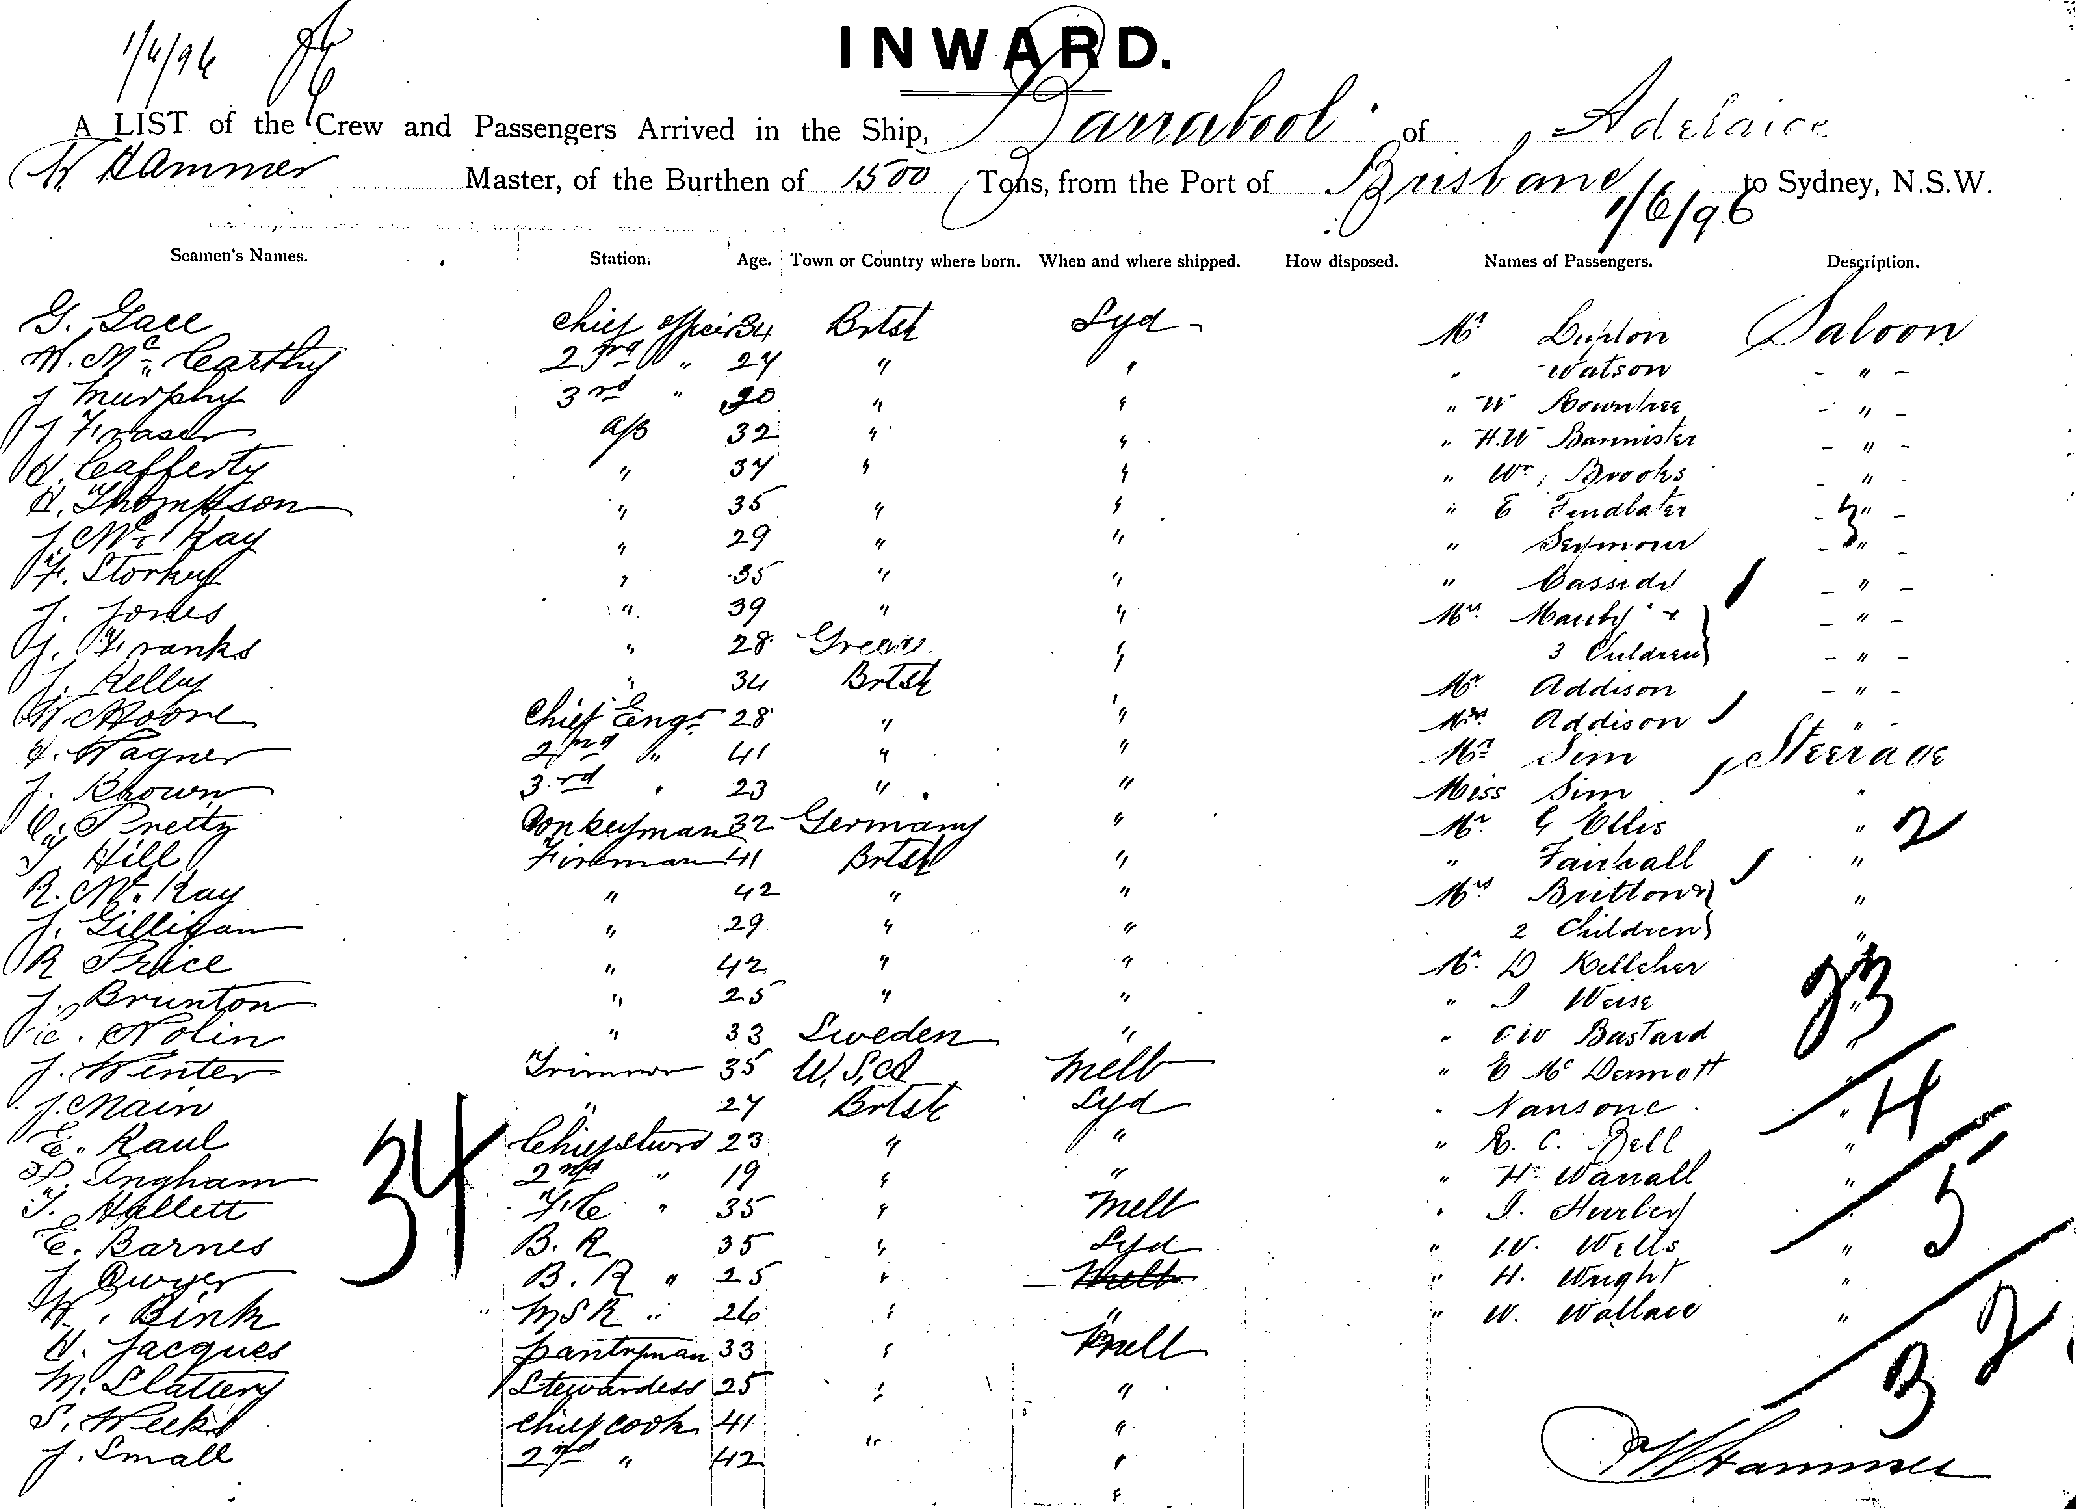 1/6/96
INWARD.
A LIST of the Crew and Passengers Arrived in the Ship, Barrabool of Adelaide
W Hammer Master, of the Burthen of 1500 Tons, from the Port of Brisbane 1/6/96 to Sydney, N.S.W.
Seamen's Names. Station. Age. Town or Country where born. When and where shipped. How disposed. Names of Passengers. Description.
G. Gace Chief Officer 34 Brtsh Syd Mr Lupton Saloon
W. McCarthy 2nd " 27 " " " Watson "
J Murphy 3rd " 20 " " " W Rowntree "
J Fraser A/B 32 " " " H.W Bannister "
H. Cafferty " 37 " " " Wm Brooks "
H. Thompson " 35 " " " E Findlater "
J. McKay " 29 " " " Seymour "
F. Storkey " 35 " " " Casside "
J. Jones " 39 " " Mrs Manby + "
G. Franks " 28 Greece " 3 Children "
J. Kelly " 34 Brtsh Mr Addison "
W. Moore Chief Engr 28 " " Mrs Addison "
H. Wagner 2nd " 41 " " Mr Sim Steerage
J. Brown 3rd " 23 " " Miss Sim "
C. Pretty Donkeyman 32 Germany " Mr G Ellis " 2
T. Hill Fireman 41 Brtsh " " Fairhall "
R. McKay " 42 " " Mrs Brittown "
J. Gilligan " 29 " " 2 Children "
R Price " 42 " " Mr D Kelleher 23
J. Brunton " 25 " " " J Weise "
C. Nolin " 33 Sweden " " CW Bastard "
J. Winter Trimmer 35 U.S.A Melb " E McDermott "
J. Main " 27 Brtsh Syd " Nansone " 4
E. Raul Chief Stwrd 23 " " " R. C. Bell "
34
H. Ingham 2nd " 19 " " " H. Warrall "
T. Hallett F.C " 35 " Melb " J. Hurley 5
E. Barnes B. R 35 " Syd " W. Wells "
J Dwyer B. R " 25 " Melb " H. Wright "
W. Bink MSR " 26 " " " W. Wallace "
H. Jacques Pantryman 33 " Melb 32
M. Slattery Stewardess 25 " "
S. Weeks Chief Cook 41 "
J. Small 2nd " 42 " "
W Hammer